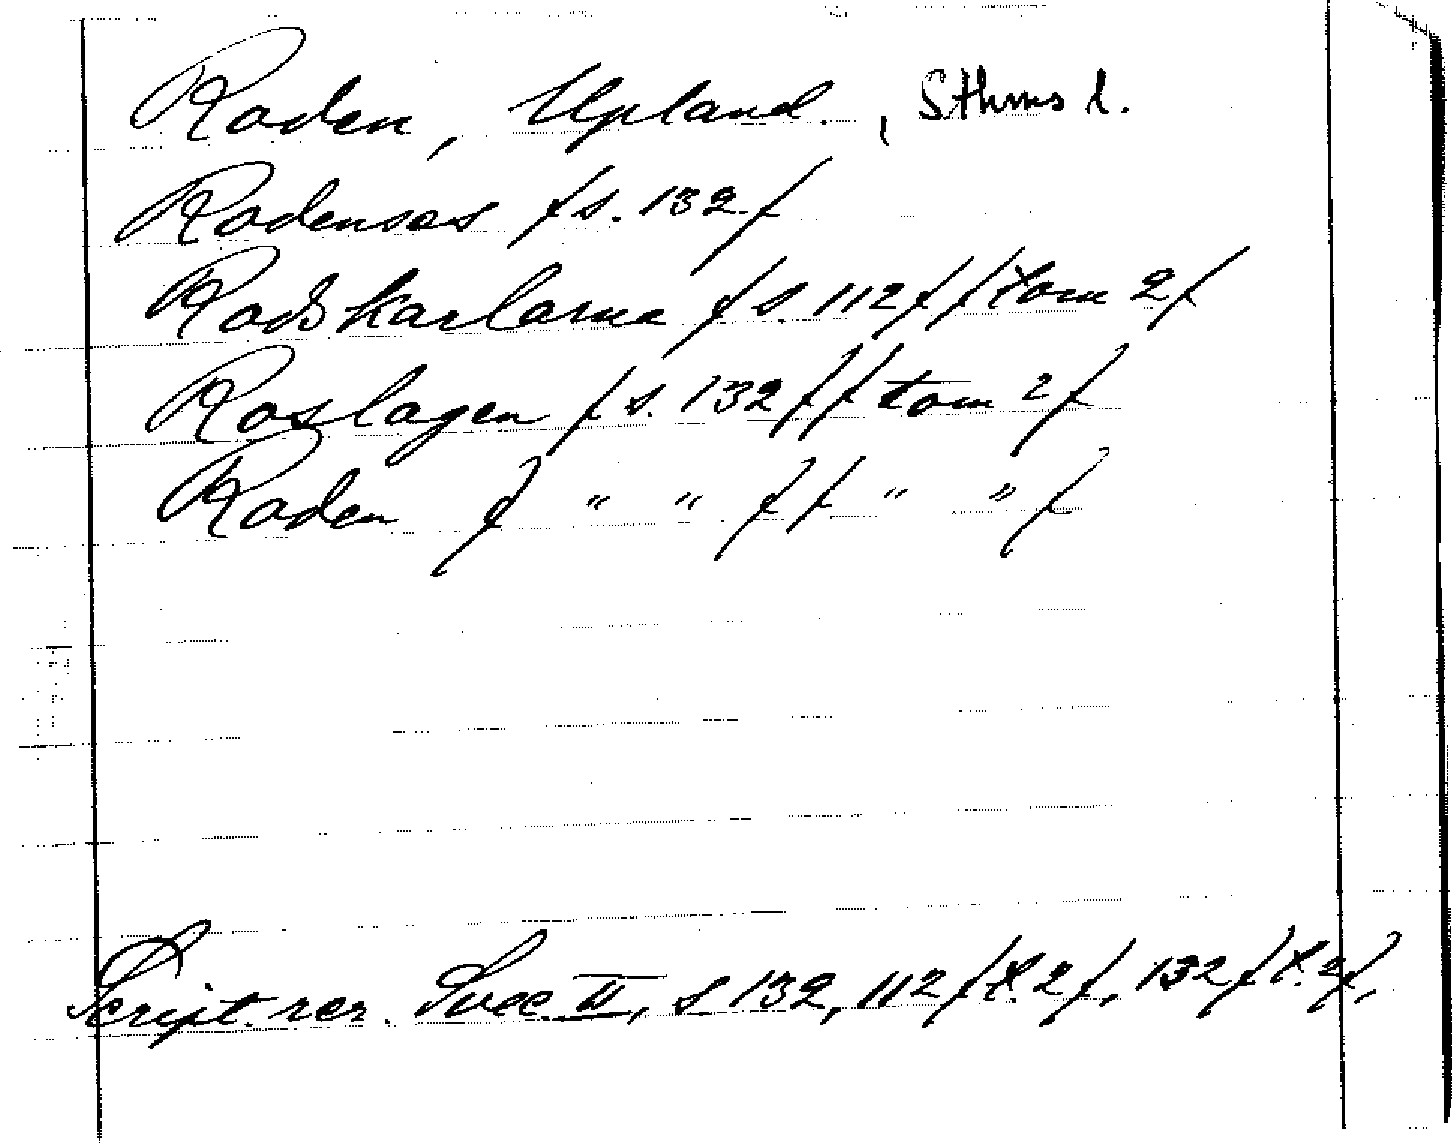 Roden, Upland., Sthms l.
Rodenses /s. 132/
Rodskarlarne /s. 112/ /tom 2/
Roslagen /s. 132/ /tom 2/
Roden / " " / / " " /
Script. rer. Svec. II, s 132, 112 /t. 2/, 132 /t. 2/,